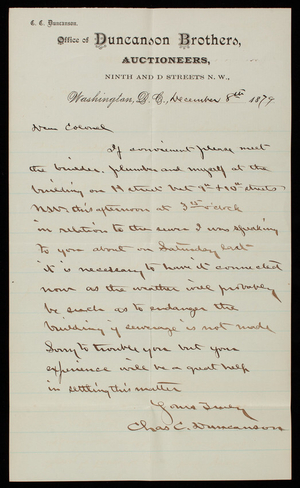 C. C. Duncanson.
Office of Duncanson Brothers,
AUCTIONEERS,
NINTH AND D STREETS N. W.,
Washington, D. C., December 8th 1879
Dear Colonel
If convenient please meet
the builder, plumber and myself at the
building on H street bet 9th & 10th streets
N.W. this afternoon at 3 o'clock
in relation to the sewer I was speaking
to you about on Saturday last
it is necessary to have it connected
now as the weather will probably
be such as to endanger the
building if sewerage is not made
Sorry to trouble you but your
experience will be a great help
in settling this matter
Yours Truly
Chas C. Duncanson